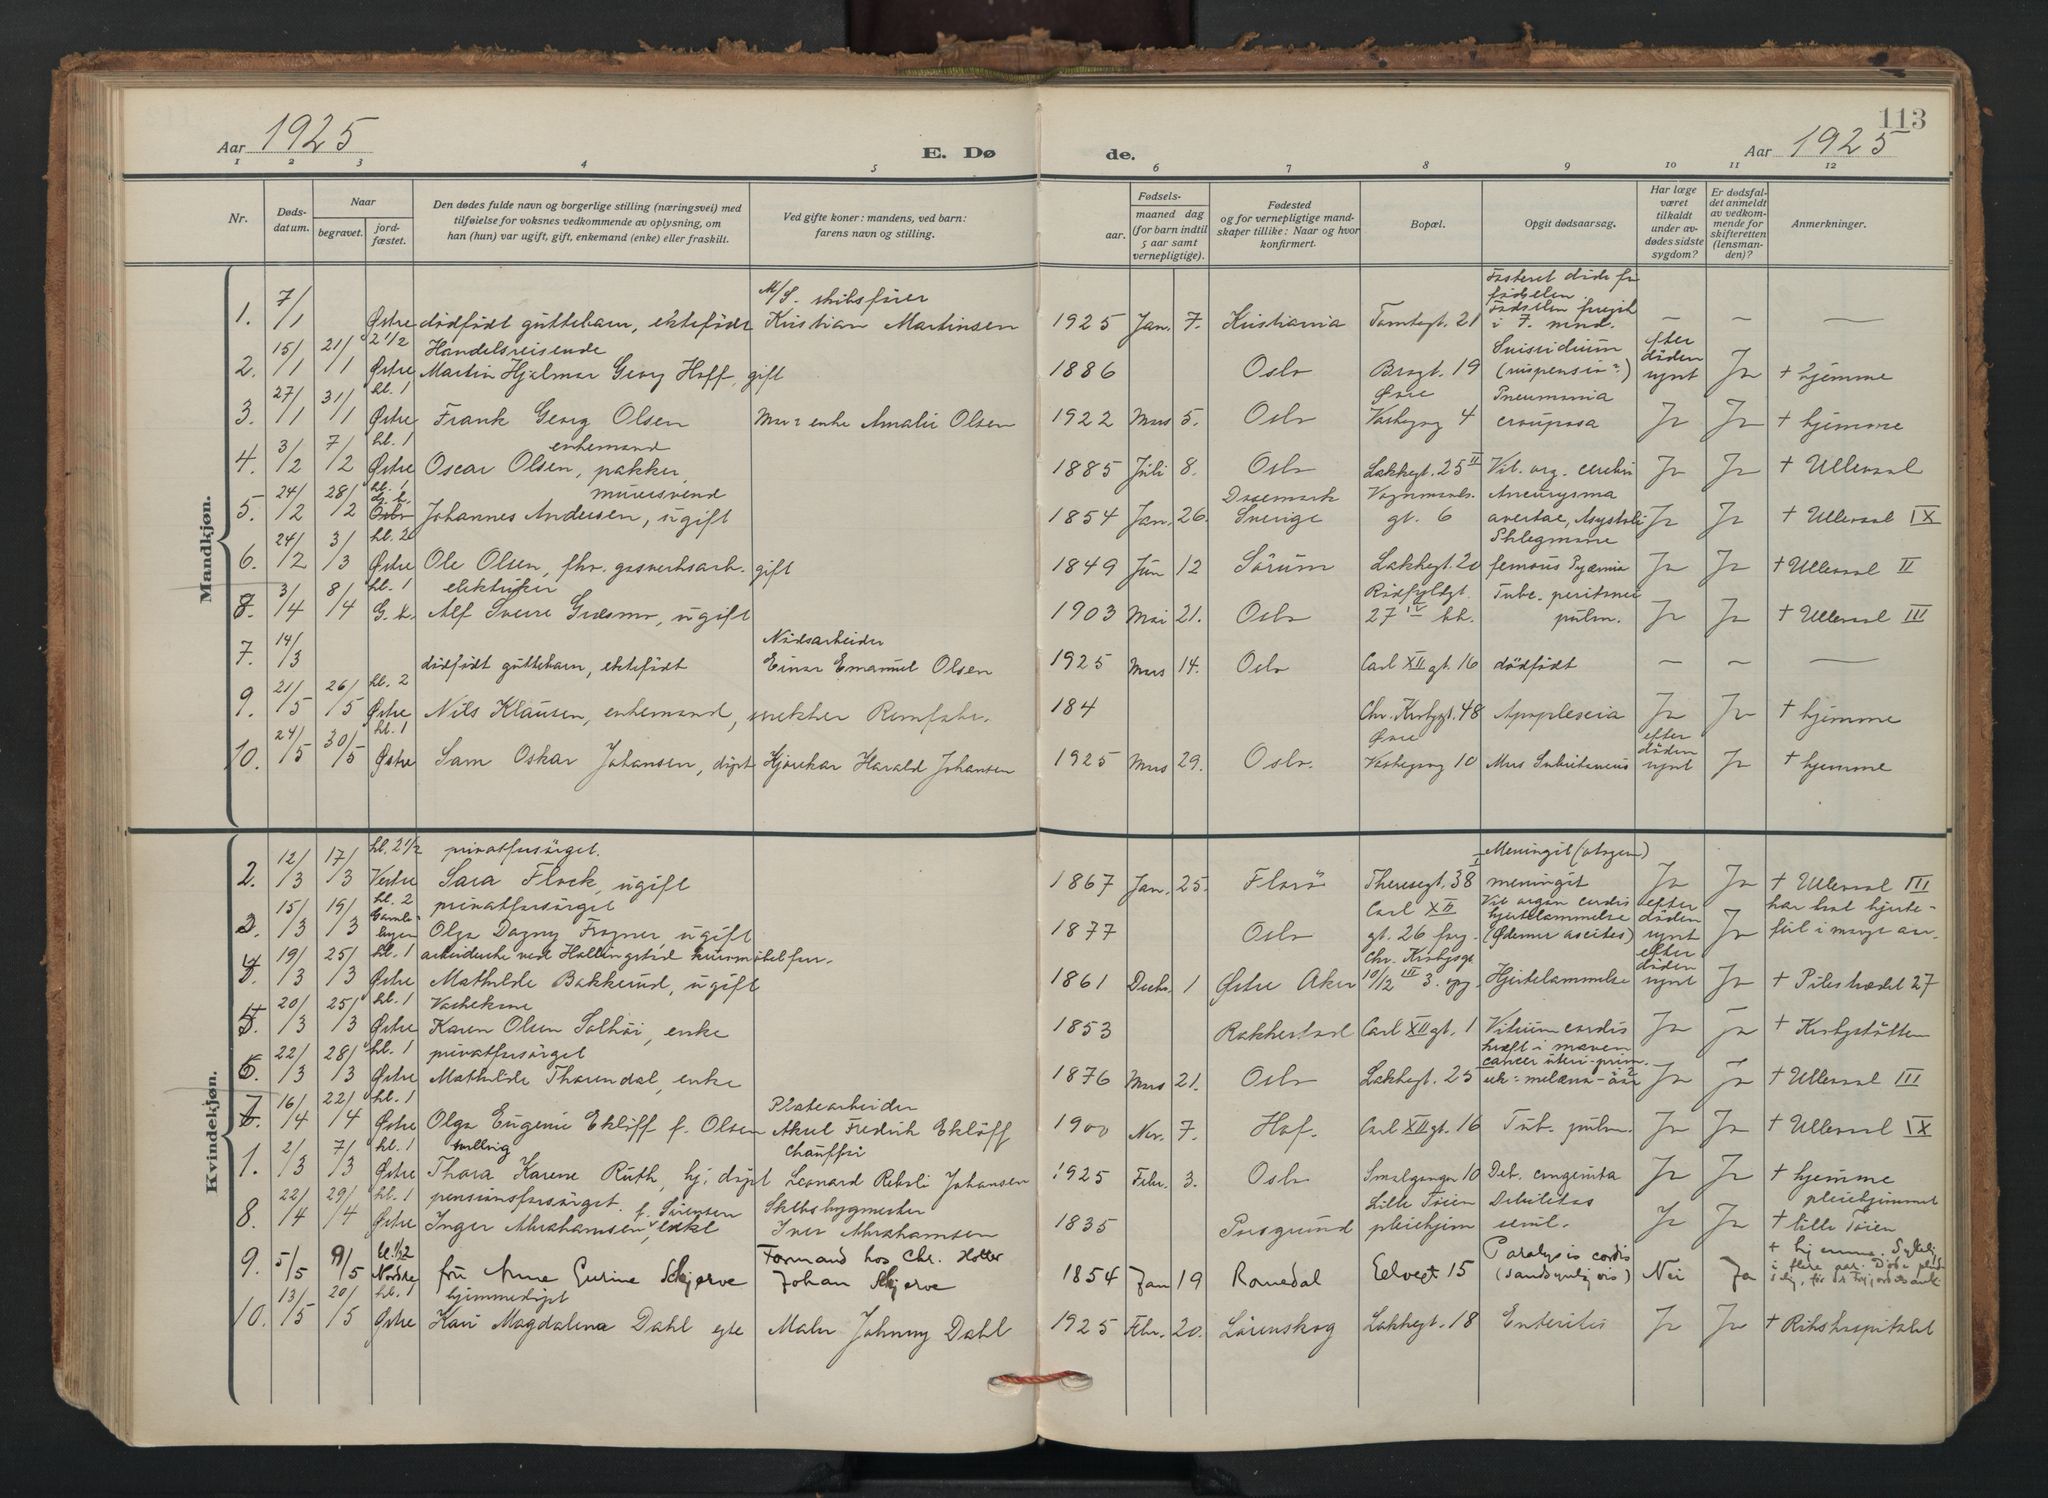 113
Aar 1925
E. Dø
de.
Aar 1925
1 2 3 4 5 6 7 8 9 10 11 12
Nr.
Døds-
datum.
Naar
begravet.
jord-
fæstet.
Den dødes fulde navn og borgerlige stilling (næringsvei) med
tilføielse for voksnes vedkommende av oplysning, om
han (hun) var ugift, gift, enkemand (enke) eller fraskilt.
Ved gifte koner: mandens, ved barn:
farens navn og stilling.
Fødsels-
aar.
maaned dag
(for barn indtil
5 aar samt
vernepligtige).
Fødested
og for vernepligtige mand-
skaper tillike: Naar og hvor
konfirmert.
Bopæl.
Opgit dødsaarsag.
Har læge
været
tilkaldt
under av-
dødes sidste
sygdom?
Er dødsfal-
det anmeldt
av vedkom-
mende for
skifteretten
(lensman-
den)?
Anmerkninger.
Mandkjøn.
M/S. skibsfører
1. 7/1 Østre dødfødt guttebarn, ektefødt Kristian Martinsen 1925 Jan. 7. Kristiania Tomtegt. 21 i 7. mnd. — — —
Handelsreisende
2. 15/1 21/1 kl. 2 1/2 Østre Martin Hjalmar Georg Hoff, gift 1886 Oslo Brogt. 19 (suspensio?) efter døden synt Ja + hjemme
3. 27/1 31/1 kl. 1 Østre Frank Georg Olsen enke Amalie Olsen 1922 Mars 5. Oslo Øvre Vaskegang 4 Pneumonia crouposa Ja Ja + hjemme
enkemand
4. 3/2 7/2 kl. 1 Østre Oscar Olsen, pakker, 1885 Juli 8. Oslo Lakkegt. 25 II Vit. org. cordis Ja Ja + Ullevaal
murersvend
5. 24/2 28/2 kl. 1 Johannes Andersen, ugift 1854 Jan. 26. Sverige Vognmands. gt. 6 Aneurysma aortae, Ja Ja + Ullevaal IX
6. 24/2 3/3 kl. 2 Østre Ole Olsen, fhv. gasverksarb. gift 1849 Jun 12 Sørum Lakkegt. 20 Phlegmone femoris Pyæmia Ja Ja + Ullevaal II
elektriker
8. 3/4 8/4 kl. 1 G. k. Alf Sverre Græsmo, ugift 1903 Mai 21. Oslo Rødfyldgt. 27 IV Tube. pulm. Ja Ja + Ullevaal III
Nødsarbeider
7. 14/3 dødfødt guttebarn, ektefødt Einar Emanuel Olsen 1925 Mars 14. Oslo Carl XII gt. 16 dødfødt — — —
9. 21/5 26/5 kl. 2 Østre Nils Klausen, enkemand, 184 Chr. Krohgsgt. 48 Apoplexia Ja Ja + hjemme
10. 24/5 30/5 kl. 1 Østre Sam Oskar Johansen, døpt Harald Johansen 1925 Mars 29. Oslo. Øvre Vaskegang 10 Mors Subitaneus efter døden synt Ja + hjemme
Kvindekjøn.
privatforsørget.
2. 12/3 17/3 kl. 2 1/2 Vestre Sara Flock, ugift 1867 Jan. 25. Florø Theresegt. 38 Meningit (otogen) meningit Ja Ja + Ullevaal III
privatforsørget
3. 15/3 19/3 kl. 2 Gamlebyen Olga Dagny Frogner, ugift 1877 Oslo Carl XII gt. 26 Vit organ cordis hjertelammelse (Ødemer ascites) efter døden synt Ja har hat hjerte-feil i mange aar.
arbeiderske ved
4. 19/3 25/3 kl. 1 Østre Mathilde Bakkerud, ugift 1861 Decbr. 1 Østre Aker Chr. Krohgsgt 10/12 III 3. opg Hjertelammelse efter døden synt Ja + Pilestrædet 27
Vaskekone
5. 20/3 25/3 kl. 1 Østre Karen Olsen Solhøi, enke 1853 Rakkestad Carl XII gt. 1 Vitium cordis Ja Ja + Krohgstøtten
privatforsørget
6. 22/3 28/3 kl. 1 Østre Mathilde Thorendal, enke 1876 Mars 21. Oslo Lakkegt. 25 kræft i maven cancer uteri-prim. Ja Ja + Ullevaal III
Platearbeider
7. 16/4 22/4 kl. 1 Østre Olga Eugenie Eklöff f. Olsen Aksel Fredrik Eklöff 1900 Nov. 7. Hof. Carl XII gt. 16 Tub. pulm. Ja Ja + Ullevaal IX
tvilling Chauffør
1. 2/3 7/3 kl. 1 Østre Thora Karene Ruth, hj. døpt Leonard Johansen 1925 Febr. 3. Oslo Smalgangen 10 Deb. congenita Ja Ja + hjemme
pensionsforsørget. f. Sørensen Skibsbygmester
8. 22/4 29/4 kl. 1 Østre Inger Abrahamsen, enke Iver Abrahamsen 1835 Porsgrund Lille Tøien pleiehjem Debilitas senil. Ja Ja + pleiehjemmet Lille Tøien
Formand hos Chr. Holter
9. 5/5 9/5 kl. 1/2 Nordre fru Anne Gurine Skjerve Johan Skjerve 1854 Jan 19 Romedal Eelvegt 15 Paralysis cordis (sandsynligvis) Nei Ja + hjemme. Sykelig i flere aar.
hjemmedøpt
10. 13/5 20/5 kl. 1 Østre Kari Magdalena Dahl egte Maler Johnny Dahl 1925 Febr. 20. Lørenskog Lakkegt. 18 Enteritis Ja Ja + Rikshospitalet